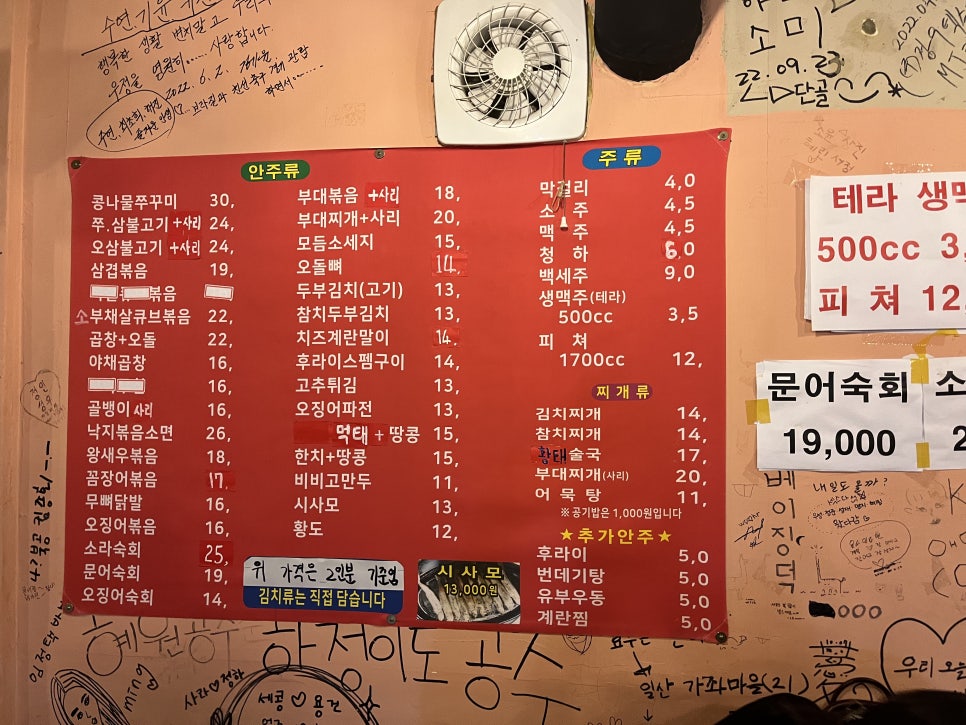 행복한 생활 변치말고
우정을 영원히...... 사랑합니다.
2022. 6. 2.
소미
22.09.23
단골
안주류
콩나물쭈꾸미 30,
쭈.삼불고기+사리 24,
오삼불고기+사리 24,
삼겹볶음 19,
볶음
소부채살큐브볶음 22,
곱창+오돌 22,
야채곱창 16,
16,
골뱅이사리 16,
낙지볶음소면 26,
왕새우볶음 18,
꼼장어볶음 17,
무뼈닭발 16,
오징어볶음 16,
소라숙회 25,
문어숙회 19,
오징어숙회 14,
부대볶음 +사리 18,
부대찌개+사리 20,
모듬소세지 15,
오돌뼈 14,
두부김치(고기) 13,
참치두부김치 13,
치즈계란말이 14,
후라이스팸구이 14,
고추튀김 13,
오징어파전 13,
먹태+땅콩 15,
한치+땅콩 15,
비비고만두 11,
시사모 13,
황도 12,
위 가격은 2인분 기준임
김치류는 직접 담습니다
시사모
13,000원
주류
막걸리 4,0
소주 4,5
맥주 4,5
청하 6,0
백세주 9,0
생맥주(테라)
500cc 3,5
피쳐
1700cc 12,
찌개류
김치찌개 14,
참치찌개 14,
황태술국 17,
부대찌개(사리) 20,
어묵탕 11,
※공기밥은 1,000원입니다
★추가안주★
후라이 5,0
번데기탕 5,0
유부우동 5,0
계란찜 5,0
테라 생맥
500cc 3,
피쳐 12,
문어숙회
19,000
소
2
베이징덕
내일도 올까?
혜원공주
하정이도 공주
사라♡정하
세콩♡용건
min
일산 가좌마을(21)
우리 오늘